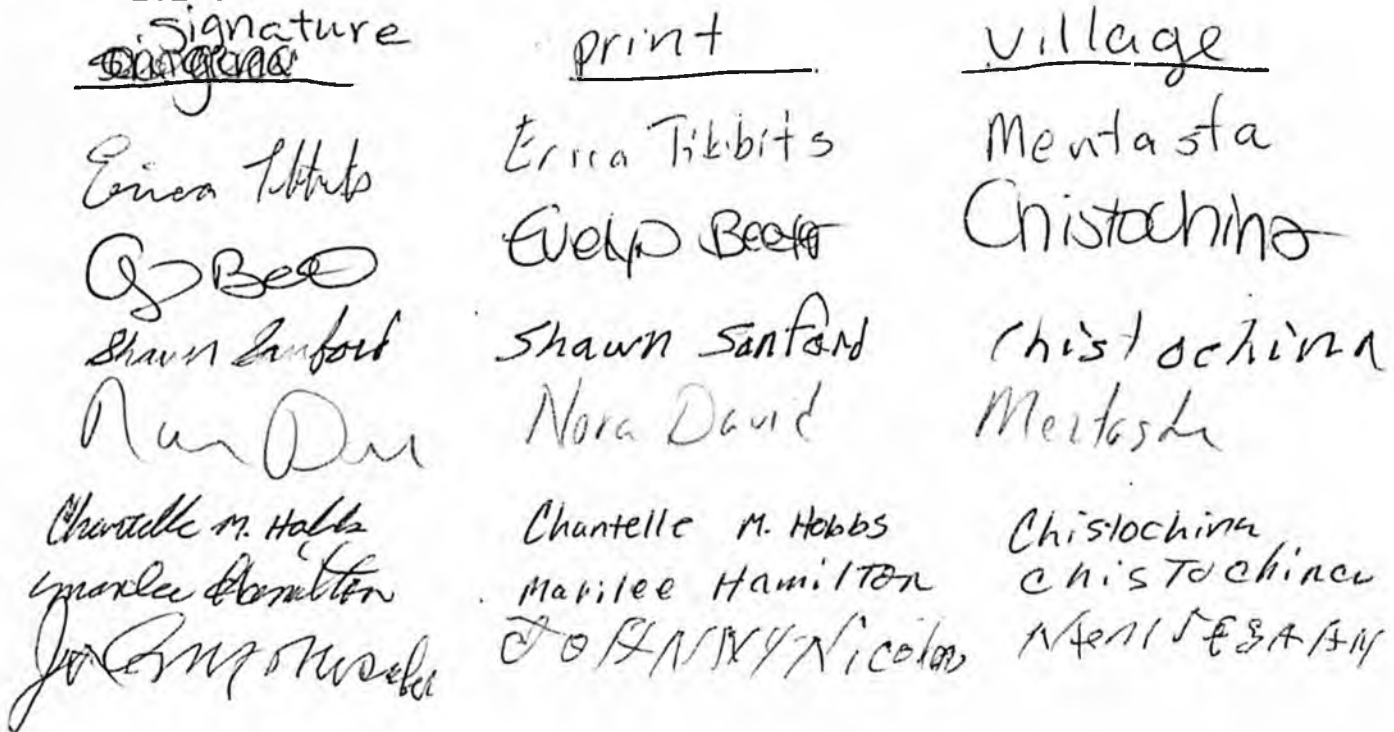 signature print village
Erica Tibbits Erica Tibbits Mentasta
Bee Evelyn Beeter Chistochina
Shawn Sanford Shawn Sanford Chistochina
Nora David Mentasta
Chantelle M. Hobbs Chantelle M. Hobbs Chistochina
Marilee Hamilton Marilee Hamilton Chistochina
JOHNNY Nicolai